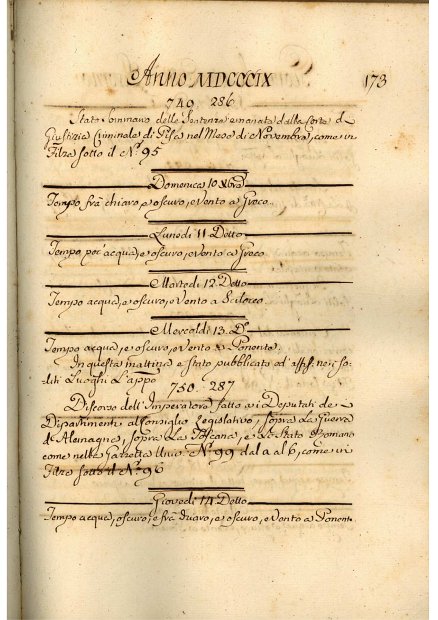 Anno MDCCCIX 173
740 286
Stato Sommano delle Sentenze emanate dalla Corte d
Giustizia Criminale di Pisa nel Mese di Novembre, come in
Filza sotto il N.º 95
Domenica 10 Xbre
Tempo frà chiaro, e oscuro, e Vento a Greco
Lunedi 11 Detto
Tempo poc' acqua, e oscuro, e Vento a Greco
Martedi 12 Detto
Tempo acqua, e oscuro, e Vento a Scilocco
Mercoldi 13 Dº
Tempo acqua, e oscuro, e Vento a Ponente
In questa mattina e stato pubblicato ed affiss. nei so-
liti Luoghi L'appo
750 287
Discorso dell'Imperatore fatto ai Deputati de
Dipartimenti al Consiglio Legislativo, sopra La Guerra
d'Alemagna, sopra La Toscana, e Stato Romano
come nella Gazzetta Univ. Nº 99 dal a al 6, come in
Filza sotto il N.º 96
Giovedi 14 Detto
Tempo acqua, oscuro, e frà chiaro, e oscuro, e Vento a Ponent.